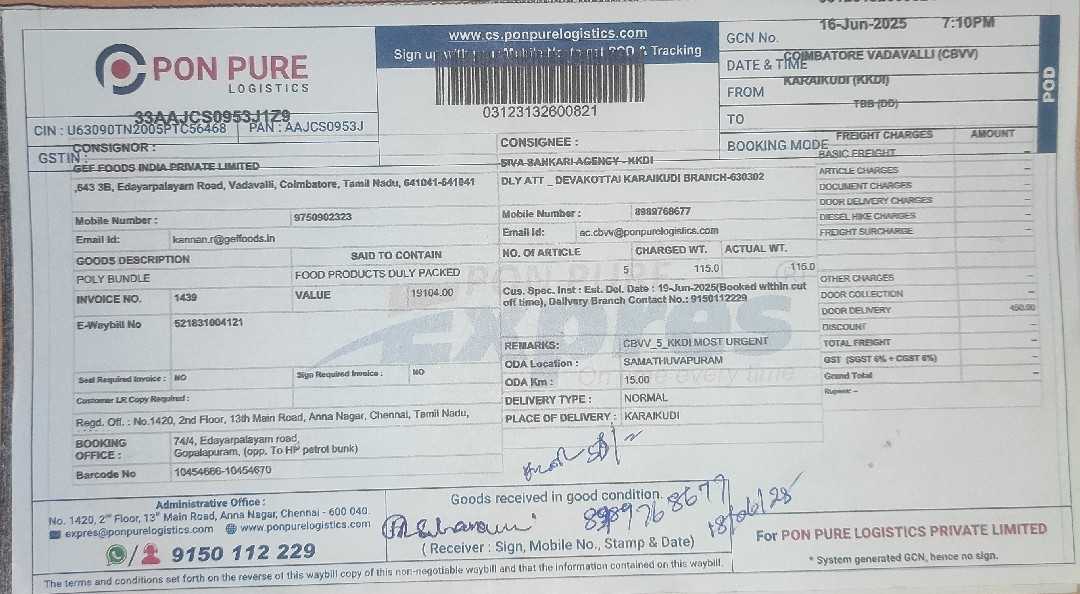 PON PURE
LOGISTICS
33AAJCS0953J1Z9
CIN : U63090TN2005PTC56468 PAN : AAJCS0953J
GSTIN :
www.cs.ponpurelogistics.com
Sign up with your Mobile No to get POD & Tracking
03123132600821
GCN No.
16-Jun-2025 7:10PM
DATE & TIME
COIMBATORE VADAVALLI (CBVV)
FROM
KARAIKUDI (KKDI)
TO
TBB (DD)
BOOKING MODE
POD
CONSIGNOR :
GEF FOODS INDIA PRIVATE LIMITED
,643 3B, Edayarpalayam Road, Vadavalli, Coimbatore, Tamil Nadu, 641041-641041
Mobile Number : 9750902323
Email Id: kannan.r@geffoods.in
CONSIGNEE :
SIVA SANKARI AGENCY - KKDI
DLY ATT _ DEVAKOTTAI KARAIKUDI BRANCH-630302
Mobile Number : 8989768677
Email Id: ac.cbvv@ponpurelogistics.com
GOODS DESCRIPTION SAID TO CONTAIN
POLY BUNDLE FOOD PRODUCTS DULY PACKED
INVOICE NO. 1439 VALUE 19104.00
E-Waybill No 521831004121
Seal Required Invoice : NO Sign Required Invoice : NO
Customer LR Copy Required :
NO. OF ARTICLE CHARGED WT. ACTUAL WT.
5 115.0 115.0
Cus. Spec. Inst : Est. Del. Date : 19-Jun-2025(Booked within cut
off time), Delivery Branch Contact No.: 9150112229
REMARKS: CBVV_5_KKDI MOST URGENT
ODA Location : SAMATHUVAPURAM
ODA Km : 15.00
DELIVERY TYPE : NORMAL
PLACE OF DELIVERY : KARAIKUDI
PON PURE
Expres
On time every time
FREIGHT CHARGES AMOUNT
BASIC FREIGHT –
ARTICLE CHARGES –
DOCUMENT CHARGES –
DOOR DELIVERY CHARGES –
DIESEL HIKE CHARGES –
FREIGHT SURCHARGE –
OTHER CHARGES –
DOOR COLLECTION –
DOOR DELIVERY 450.00
DISCOUNT
TOTAL FREIGHT –
GST (SGST 6% + CGST 6%) –
Grand Total –
Rupees: –
Regd. Off. : No.1420, 2nd Floor, 13th Main Road, Anna Nagar, Chennai, Tamil Nadu,
BOOKING OFFICE : 74/4, Edayarpalayam road,
Gopalapuram, (opp. To HP petrol bunk)
Barcode No 10454666-10454670
Administrative Office :
No. 1420, 2nd Floor, 13th Main Road, Anna Nagar, Chennai - 600 040.
expres@ponpurelogistics.com www.ponpurelogistics.com
9150 112 229
Goods received in good condition.
8989768677
18/06/25
( Receiver : Sign, Mobile No., Stamp & Date)
For PON PURE LOGISTICS PRIVATE LIMITED
* System generated GCN, hence no sign.
The terms and conditions set forth on the reverse of this waybill copy of this non-negotiable waybill and that the information contained on this waybill.